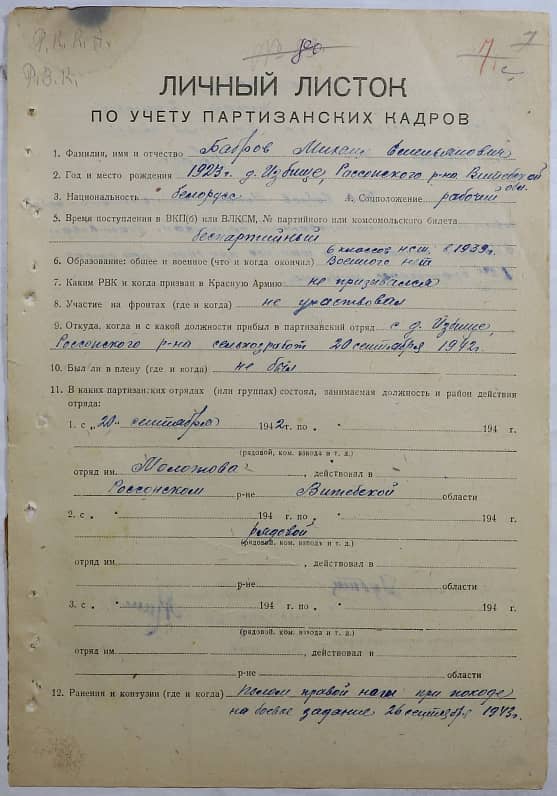 Р.К.К.А.
Р.В.К.
80
7
7
ЛИЧНЫЙ ЛИСТОК
ПО УЧЕТУ ПАРТИЗАНСКИХ КАДРОВ
1. Фамилия, имя и отчество Бабров Михаил Емельянович
2. Год и место рождения 1923 г. д. Избище, Россонского р-на Витебской
обл.
3. Национальность белорус 4. Соцположение рабочий
5. Время поступления в ВКП(б) или ВЛКСМ, № партийного или комсомольского билета
беспартийный
6 классов нсш. в 1939 г.
6. Образование: общее и военное (что и когда окончил) Военного нет
7. Каким РВК и когда призван в Красную Армию не призывался
8. Участие на фронтах (где и когда) не участвовал
9. Откуда, когда и с какой должности прибыл в партизанский отряд с д. Избище,
Россонского р-на сельхозработ 20 сентября 1942 г.
10. Был ли в плену (где и когда) не был
11. В каких партизанских отрядах (или группах) состоял, занимаемая должность и район действия
отряда:
1. с „20" сентября 1942 г. по „ " 194 г.
(рядовой, ком. взвода и т. д.)
отряд им. Молотова, действовал в
Россонском р-не Витебской области
2. с „ " 194 г. по „ " 194 г.
рядовой
(рядовой, ком. взвода и т. д.)
отряд им. , действовал в
р-не области
3. с „ " 194 г. по „ " 194 г.
(рядовой, ком. взвода и т. д.)
отряд им. , действовал в
р-не области
12. Ранения и контузии (где и когда) перелом правой наги при походе
на боевое задание 26 сентября 1943 г.